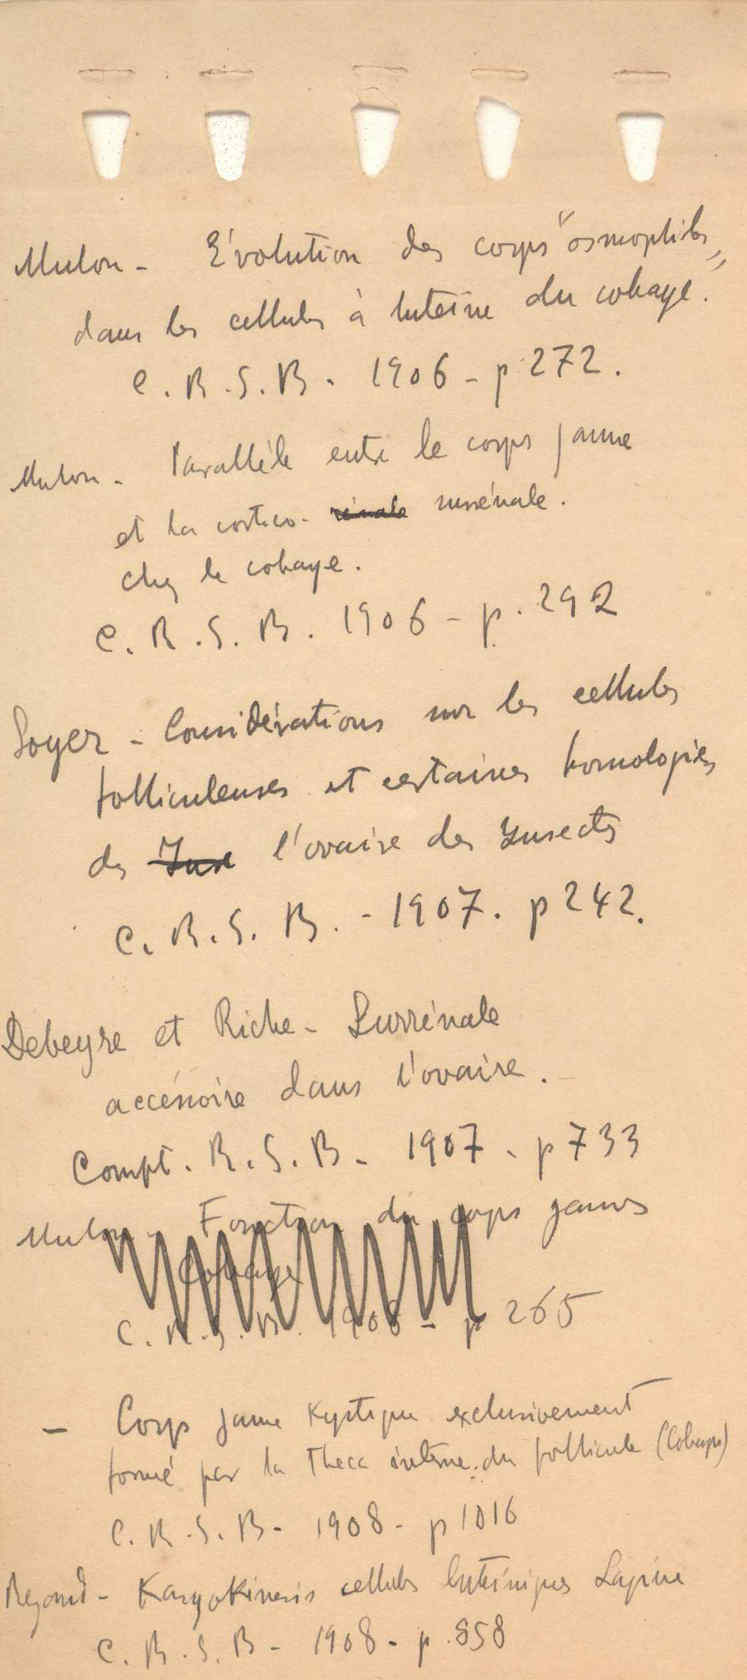 Mulon - Évolution des corps "osmophiles"
dans les cellules à lutéine du cobaye.
C. R. S. B. 1906 - p 272.
Mulon - Parallèle entre le corps jaune
et la cortico- rénale surrénale.
chez le cobaye.
C. R. S. B. 1906 - p. 292
Soyer - Considérations sur les cellules
folliculeuses et certaines homologies
de l'ovaire des Insectes
C. R. S. B. - 1907. p 242.
Debeyre et Riche - Surrénale
accessoire dans l'ovaire.
Compt. R. S. B - 1907 - p 733
Mulon - Fonction du corps jaunes
Cobaye
C. R. S. B. 1906 - p 265
- Corps jaune Kystique exclusivement
formé par la Theca interne du follicule (Cobaye)
C. R. S. B - 1908 - p 1016
Regaud - Karyokinesis cellules lutéiniques Lapine
C. R. S. B - 1908 - p. 858